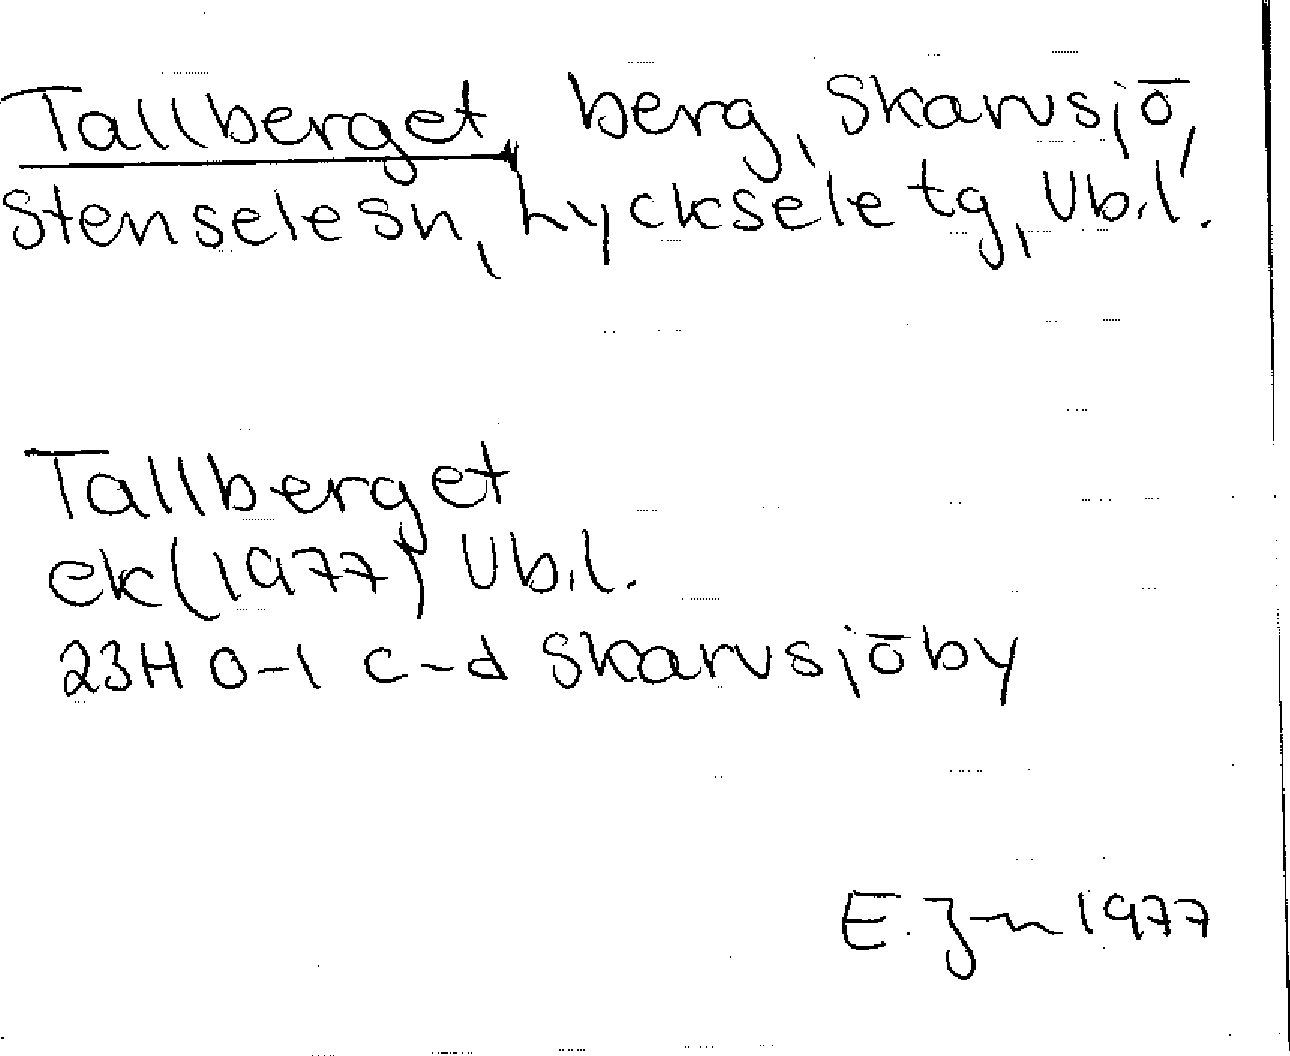 Tallberget, berg, Skarvsjö,
Stensele sn, Lycksele tg, Vb.l.
Tallberget
ek (1977) Vb.l.
23H 0-1 c-d Skarvsjöby
E. J-n 1977